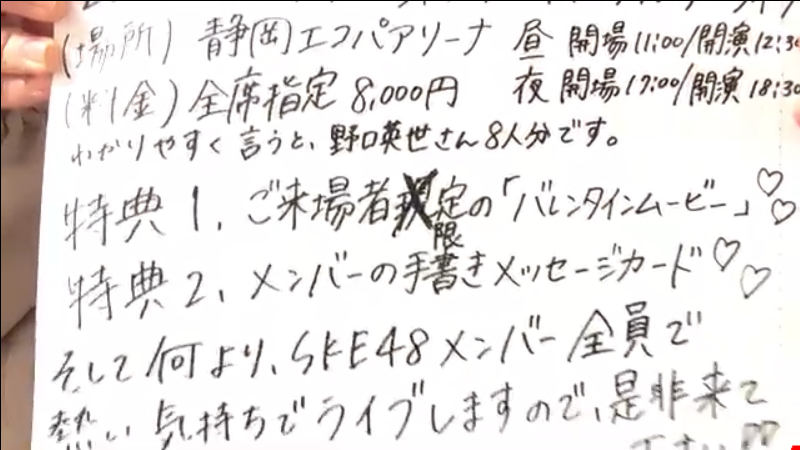 (場所) 静岡エコパアリーナ 昼 開場11:00/開演12:30
夜 開場17:00/開演18:30
(料金) 全席指定 8,000円
わかりやすく言うと、野口英世さん8人分です。
特典1、ご来場者限定の「バレンタインムービー」♡♡
特典2、メンバーの手書きメッセージカード♡♡
そして何より、SKE48メンバー全員で
熱い気持ちでライブしますので、是非来て
下さい♡♡